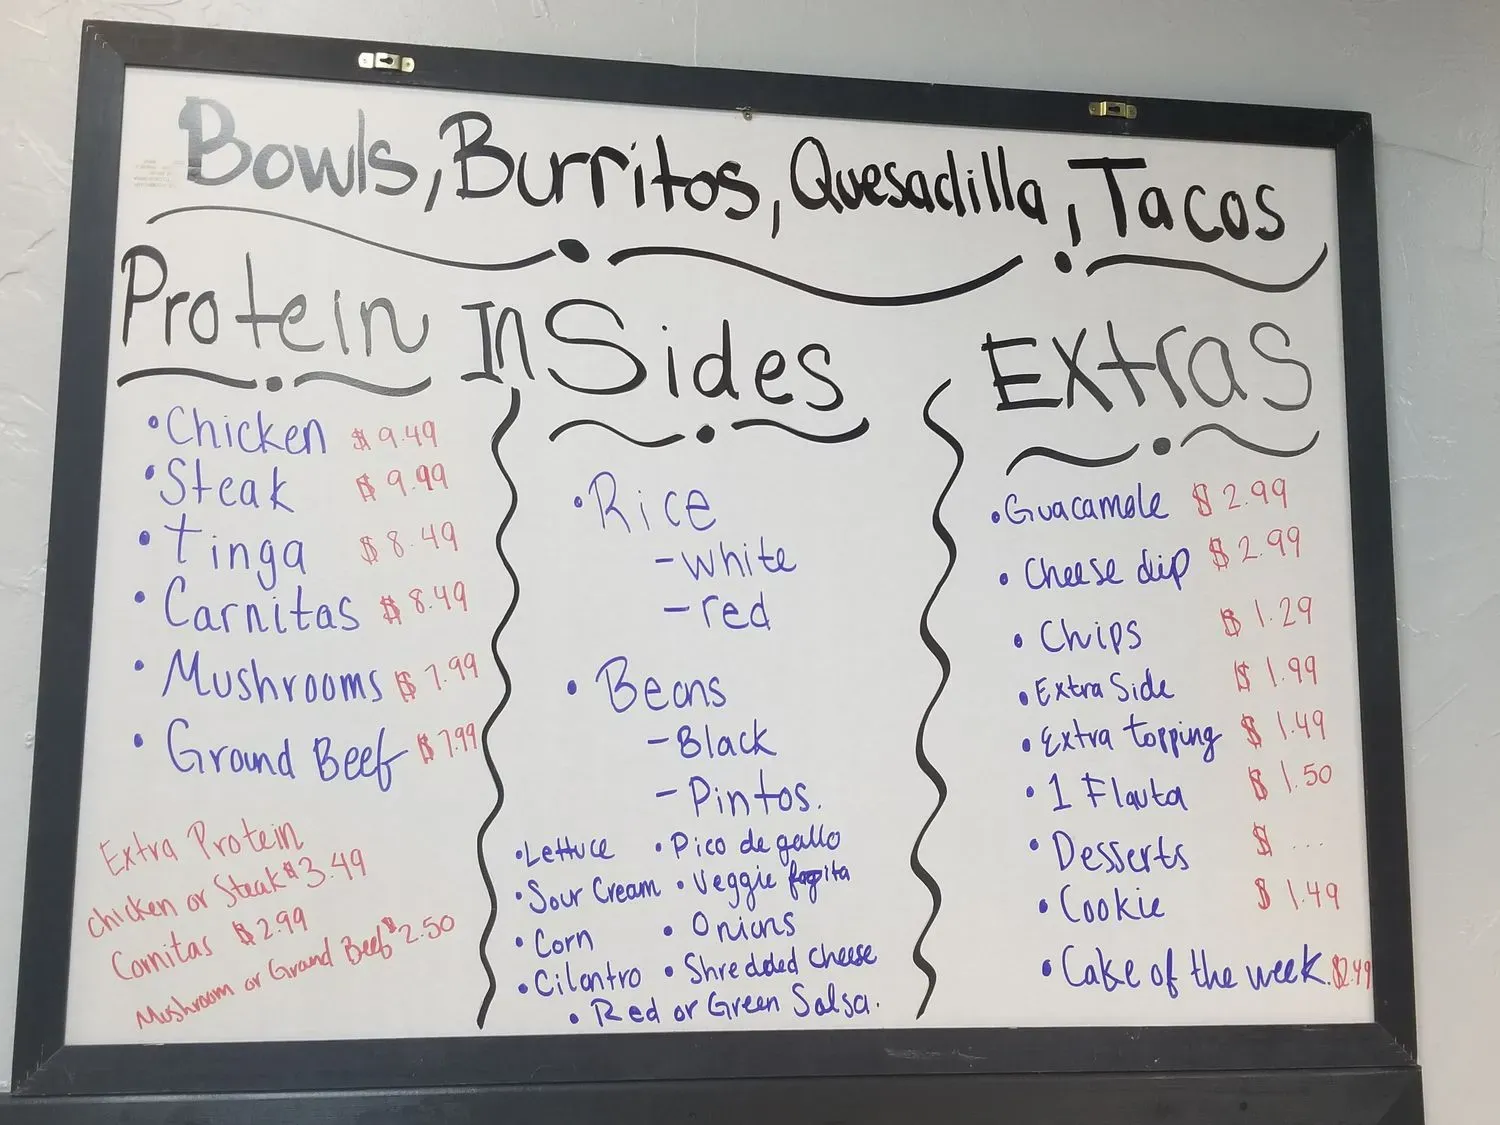 Bowls, Burritos, Quesadilla, Tacos
Protein
• Chicken $ 9.49
• Steak $ 9.99
• Tinga $ 8.49
• Carnitas $ 8.49
• Mushrooms $ 7.99
• Ground Beef $ 7.99
Extra Protein
Chicken or Steak $3.49
Carnitas $2.99
Mushroom or Ground Beef $2.50
In Sides
• Rice
- White
- red
• Beans
- Black
- Pintos.
• Lettuce • Pico de gallo
• Sour Cream • Veggie fagita
• Corn • Onions
• Cilantro • Shredded cheese
• Red or Green Salsa.
Extras
• Guacamole $ 2.99
• Cheese dip $ 2.99
• Chips $ 1.29
• Extra Side $ 1.99
• Extra topping $ 1.49
• 1 Flauta $ 1.50
• Desserts $ ...
• Cookie $ 1.49
• Cake of the week. $2.49